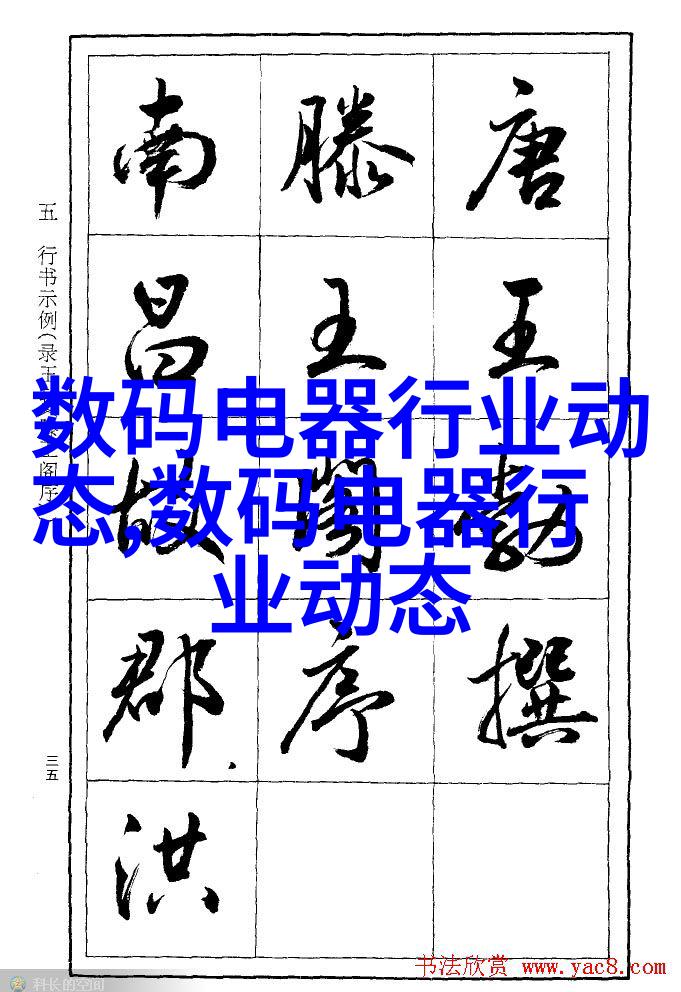 唐王勃撰
滕王阁序
南昌故郡.
洪
五 行书示例(录王
阁序
三五
数码电器行业动
态,数码电器行
业动态
书法欣赏 www.yac8.com
科长的空间